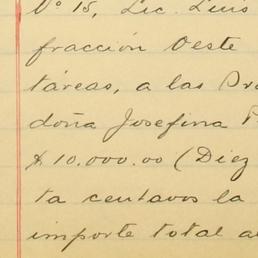 Nº 15, Lic. Luis
fracción Oeste
táreas, a las
doña Josefina
$10.000.00 (Diez
ta centavos la
importe total